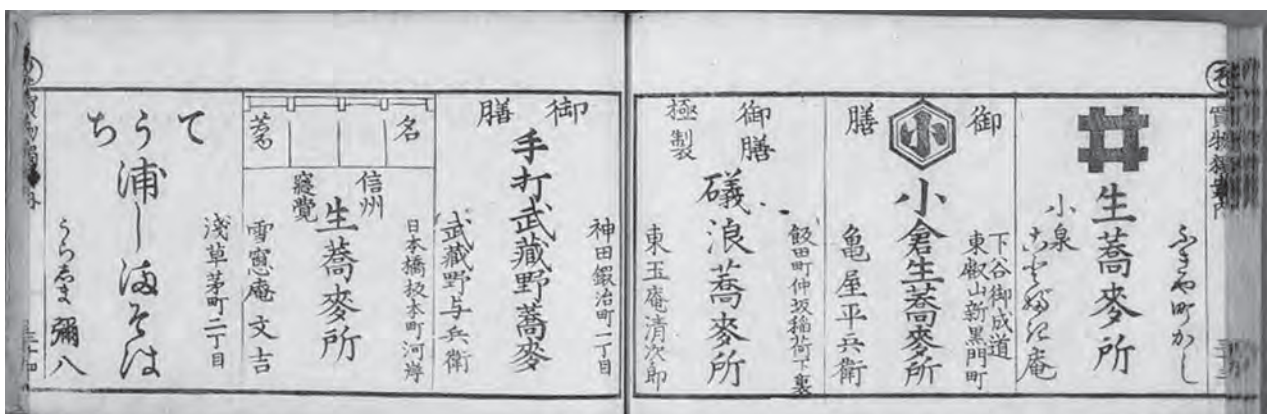 買物獨案内
ふきや町かし
生蕎麥所
小泉
庵
御膳
小
下谷御成道
東叡山新黒門町
小倉生蕎麥所
亀屋平兵衛
御膳
極製
飯田町仲坂稲荷下裏
礒浪蕎麥所
東玉庵清次郎
御膳
神田鍛治町一丁目
手打武藏野蕎麥
武藏野与兵衛
名
信州
寝覺
日本橋坂本町河岸
生蕎麥所
雪窓庵文吉
てうち
淺草茅町二丁目
浦しまそは
うらしま彌八